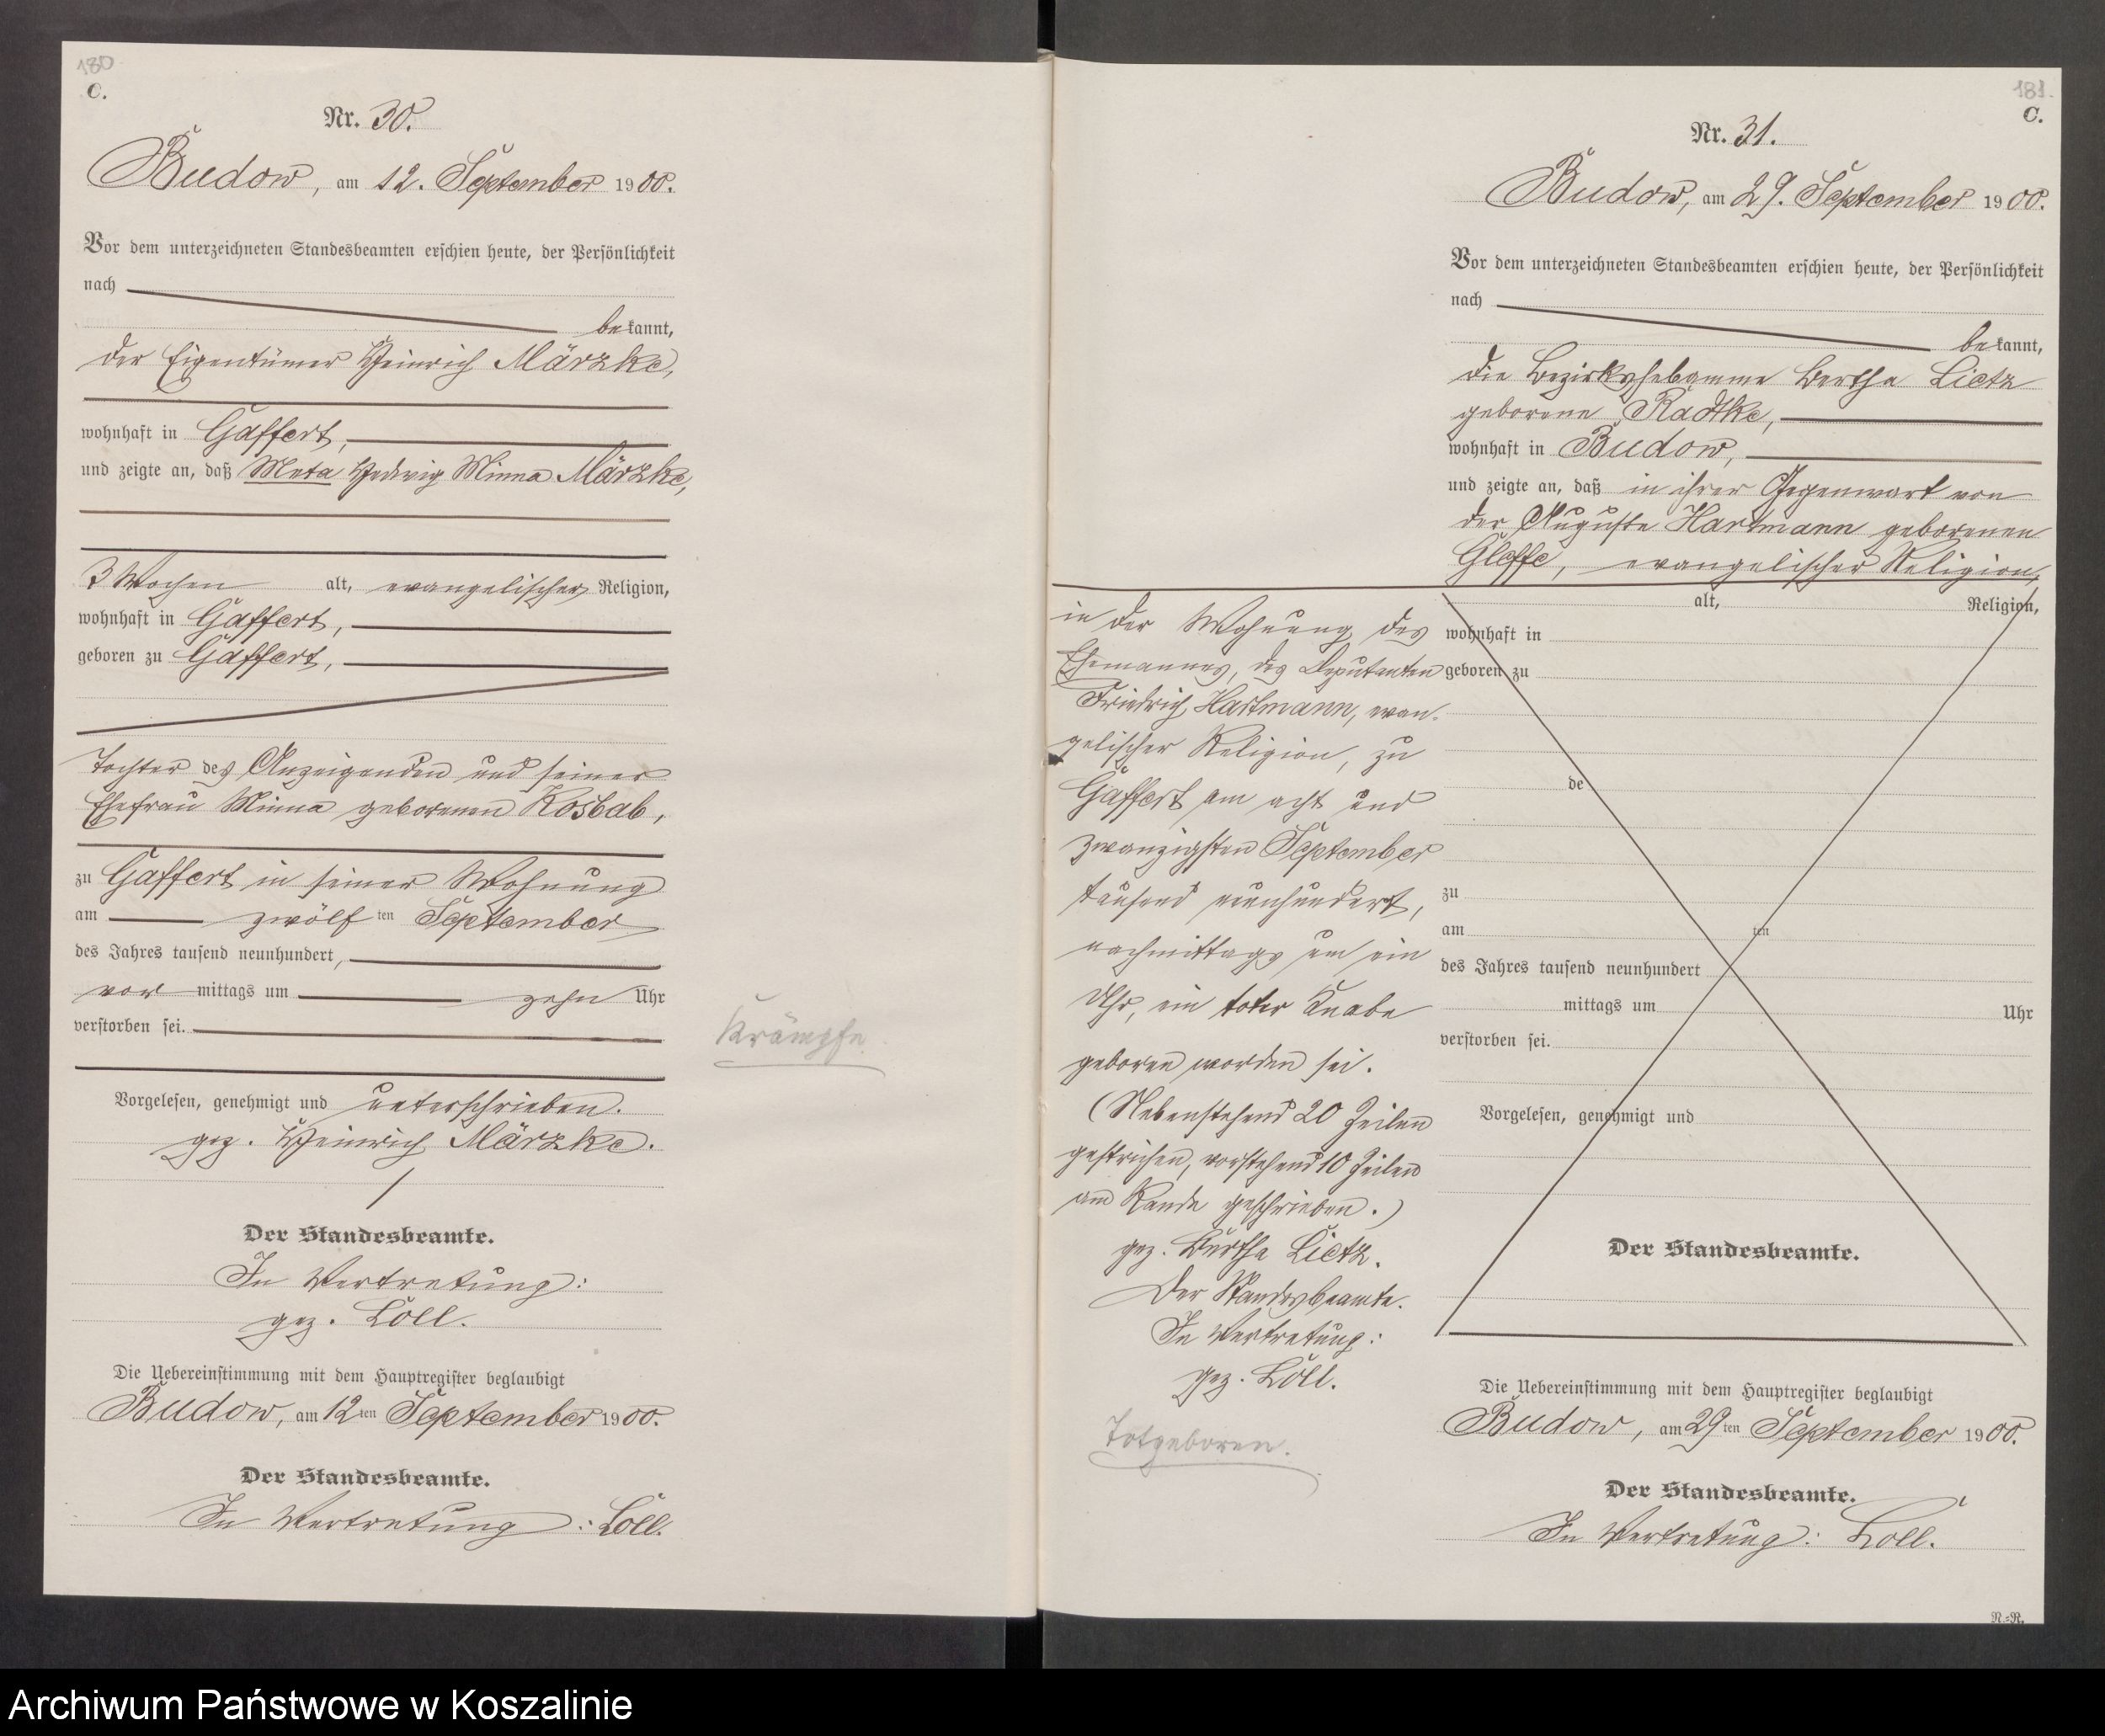 180
C.
Nr. 30.
Budow, am 12. September 1900.
Vor dem unterzeichneten Standesbeamten erschien heute, der Persönlichkeit
nach
bekannt,
der Eigentümer Heinrich Märzke,
wohnhaft in Gaffert,
und zeigte an, daß Meta Hedwig Minna Märzke,
3 Wochen alt, evangelischer Religion,
wohnhaft in Gaffert,
geboren zu Gaffert,
Tochter des Anzeigenden und seiner
Ehefrau Minna geborenen Kosbab,
zu Gaffert in seiner Wohnung
am zwölften September
des Jahres tausend neunhundert,
vor mittags um zehn Uhr
verstorben sei.
Krämpfe
Vorgelesen, genehmigt und unterschrieben.
gez. Heinrich Märzke.
Der Standesbeamte.
In Vertretung:
gez. Loll.
Die Uebereinstimmung mit dem Hauptregister beglaubigt
Budow, am 12ten September 1900.
Der Standesbeamte.
In Vertretung: Loll.
181.
C.
Nr. 31.
Budow, am 29. September 1900.
Vor dem unterzeichneten Standesbeamten erschien heute, der Persönlichkeit
nach
bekannt,
die Bezirkshebamme Bertha Lietz
geborene Radtke,
wohnhaft in Budow,
und zeigte an, daß in ihrer Gegenwart von
der Auguste Hartmann geborenen
Gleffe, evangelischer Religion,
in der Wohnung des
Ehemannes, des Deputanten
Friedrich Hartmann, evan-
gelischer Religion, zu
Gaffert am acht und
zwanzigsten September
tausend neunhundert,
nachmittags um ein
Uhr, ein toter Knabe
geboren worden sei.
(Nebenstehend 20 Zeilen
gestrichen, vorstehend 10 Zeilen
am Rande geschrieben.)
gez. Bertha Lietz.
Der Standesbeamte.
In Vertretung:
gez. Loll.
Totgeboren.
alt, Religion,
wohnhaft in
geboren zu
de
zu
am ten
des Jahres tausend neunhundert
mittags um Uhr
verstorben sei.
Vorgelesen, genehmigt und
Der Standesbeamte.
Die Uebereinstimmung mit dem Hauptregister beglaubigt
Budow, am 29ten September 1900.
Der Standesbeamte.
In Vertretung: Loll.
N.=R.
Archiwum Państwowe w Koszalinie